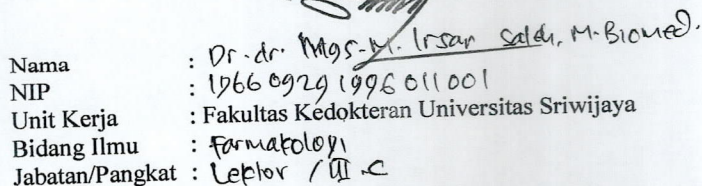 Nama : Dr. dr. Mgs. M. Irsan Saleh, M. Biomed.
NIP : 196609291996011001
Unit Kerja : Fakultas Kedokteran Universitas Sriwijaya
Bidang Ilmu : Farmakologi
Jabatan/Pangkat : Lektor / III.C